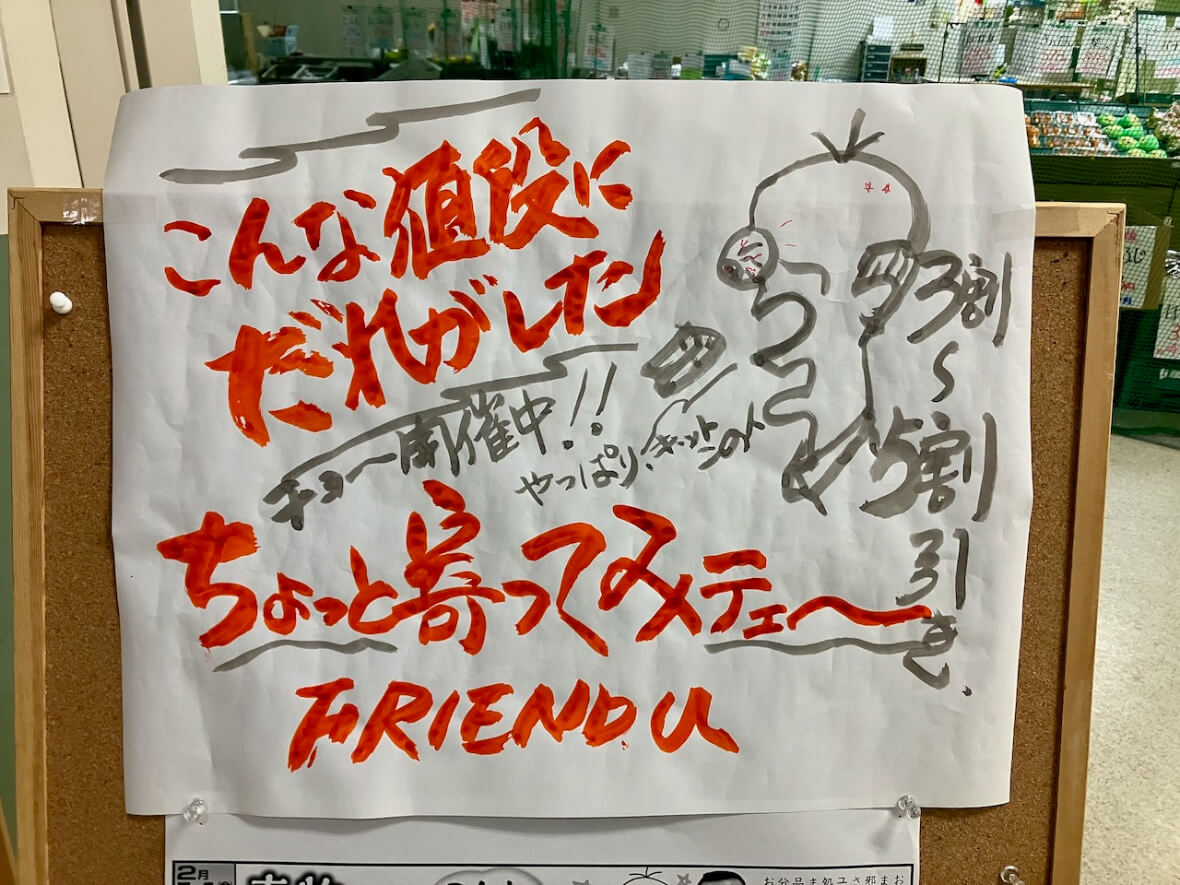 こんな値役に
だれがしたン
チョー開催中!!
やっぱり、キットこの人
3割
〜
5割
引き、
ちょっと寄ってみメテェ〜
FRIEND U
2月